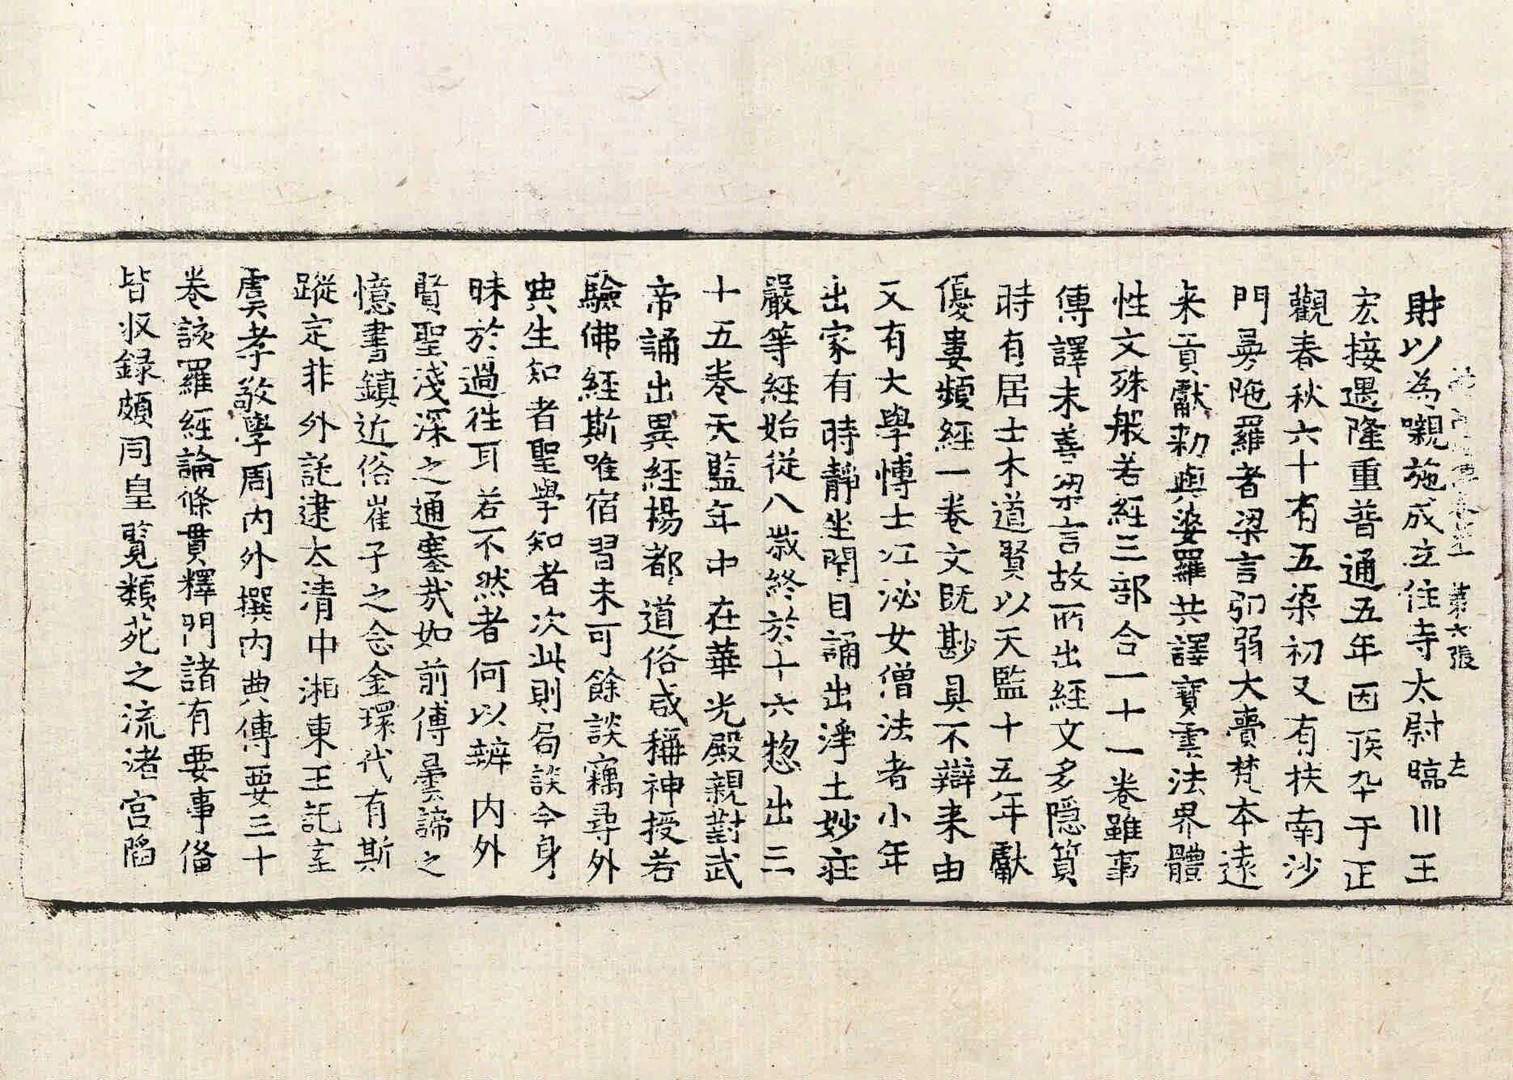 第六張
財以為嚫施成立住寺太尉臨川王
宏接遇隆重普通五年因疾卒于正
觀春秋六十有五梁初又有扶南沙
門曼陁羅者梁言弘弱大賷梵本遠
来貢獻勑與婆羅共譯寶雲法界體
性文殊般若經三部合一十一卷雖事
傳譯未善梁言故所出經文多隠質
時有居士木道賢以天監十五年獻
優婁頻經一卷文既尠具不辯来由
又有大學博士江泌女僧法者小年
出家有時靜坐閇目誦出淨土妙莊
嚴等經始從八歳終於十六惣出三
十五卷天監年中在華光殿親對武
帝誦出異經楊都道俗咸稱神授若
驗佛經斯唯宿習未可餘談竊尋外
典生知者聖學知者次此則局談今身
昧於過徃耳若不然者何以辨內外
賢聖淺深之通塞㢤如前傅曇諦之
憶書鎮近俗崔子之念金環代有斯
蹤定非外託逮太清中湘東王記室
虞孝敬學周內外撰內典傅要三十
卷該羅經論條貫釋門諸有要事俻
皆収録頗同皇覽類苑之流渚宮䧟